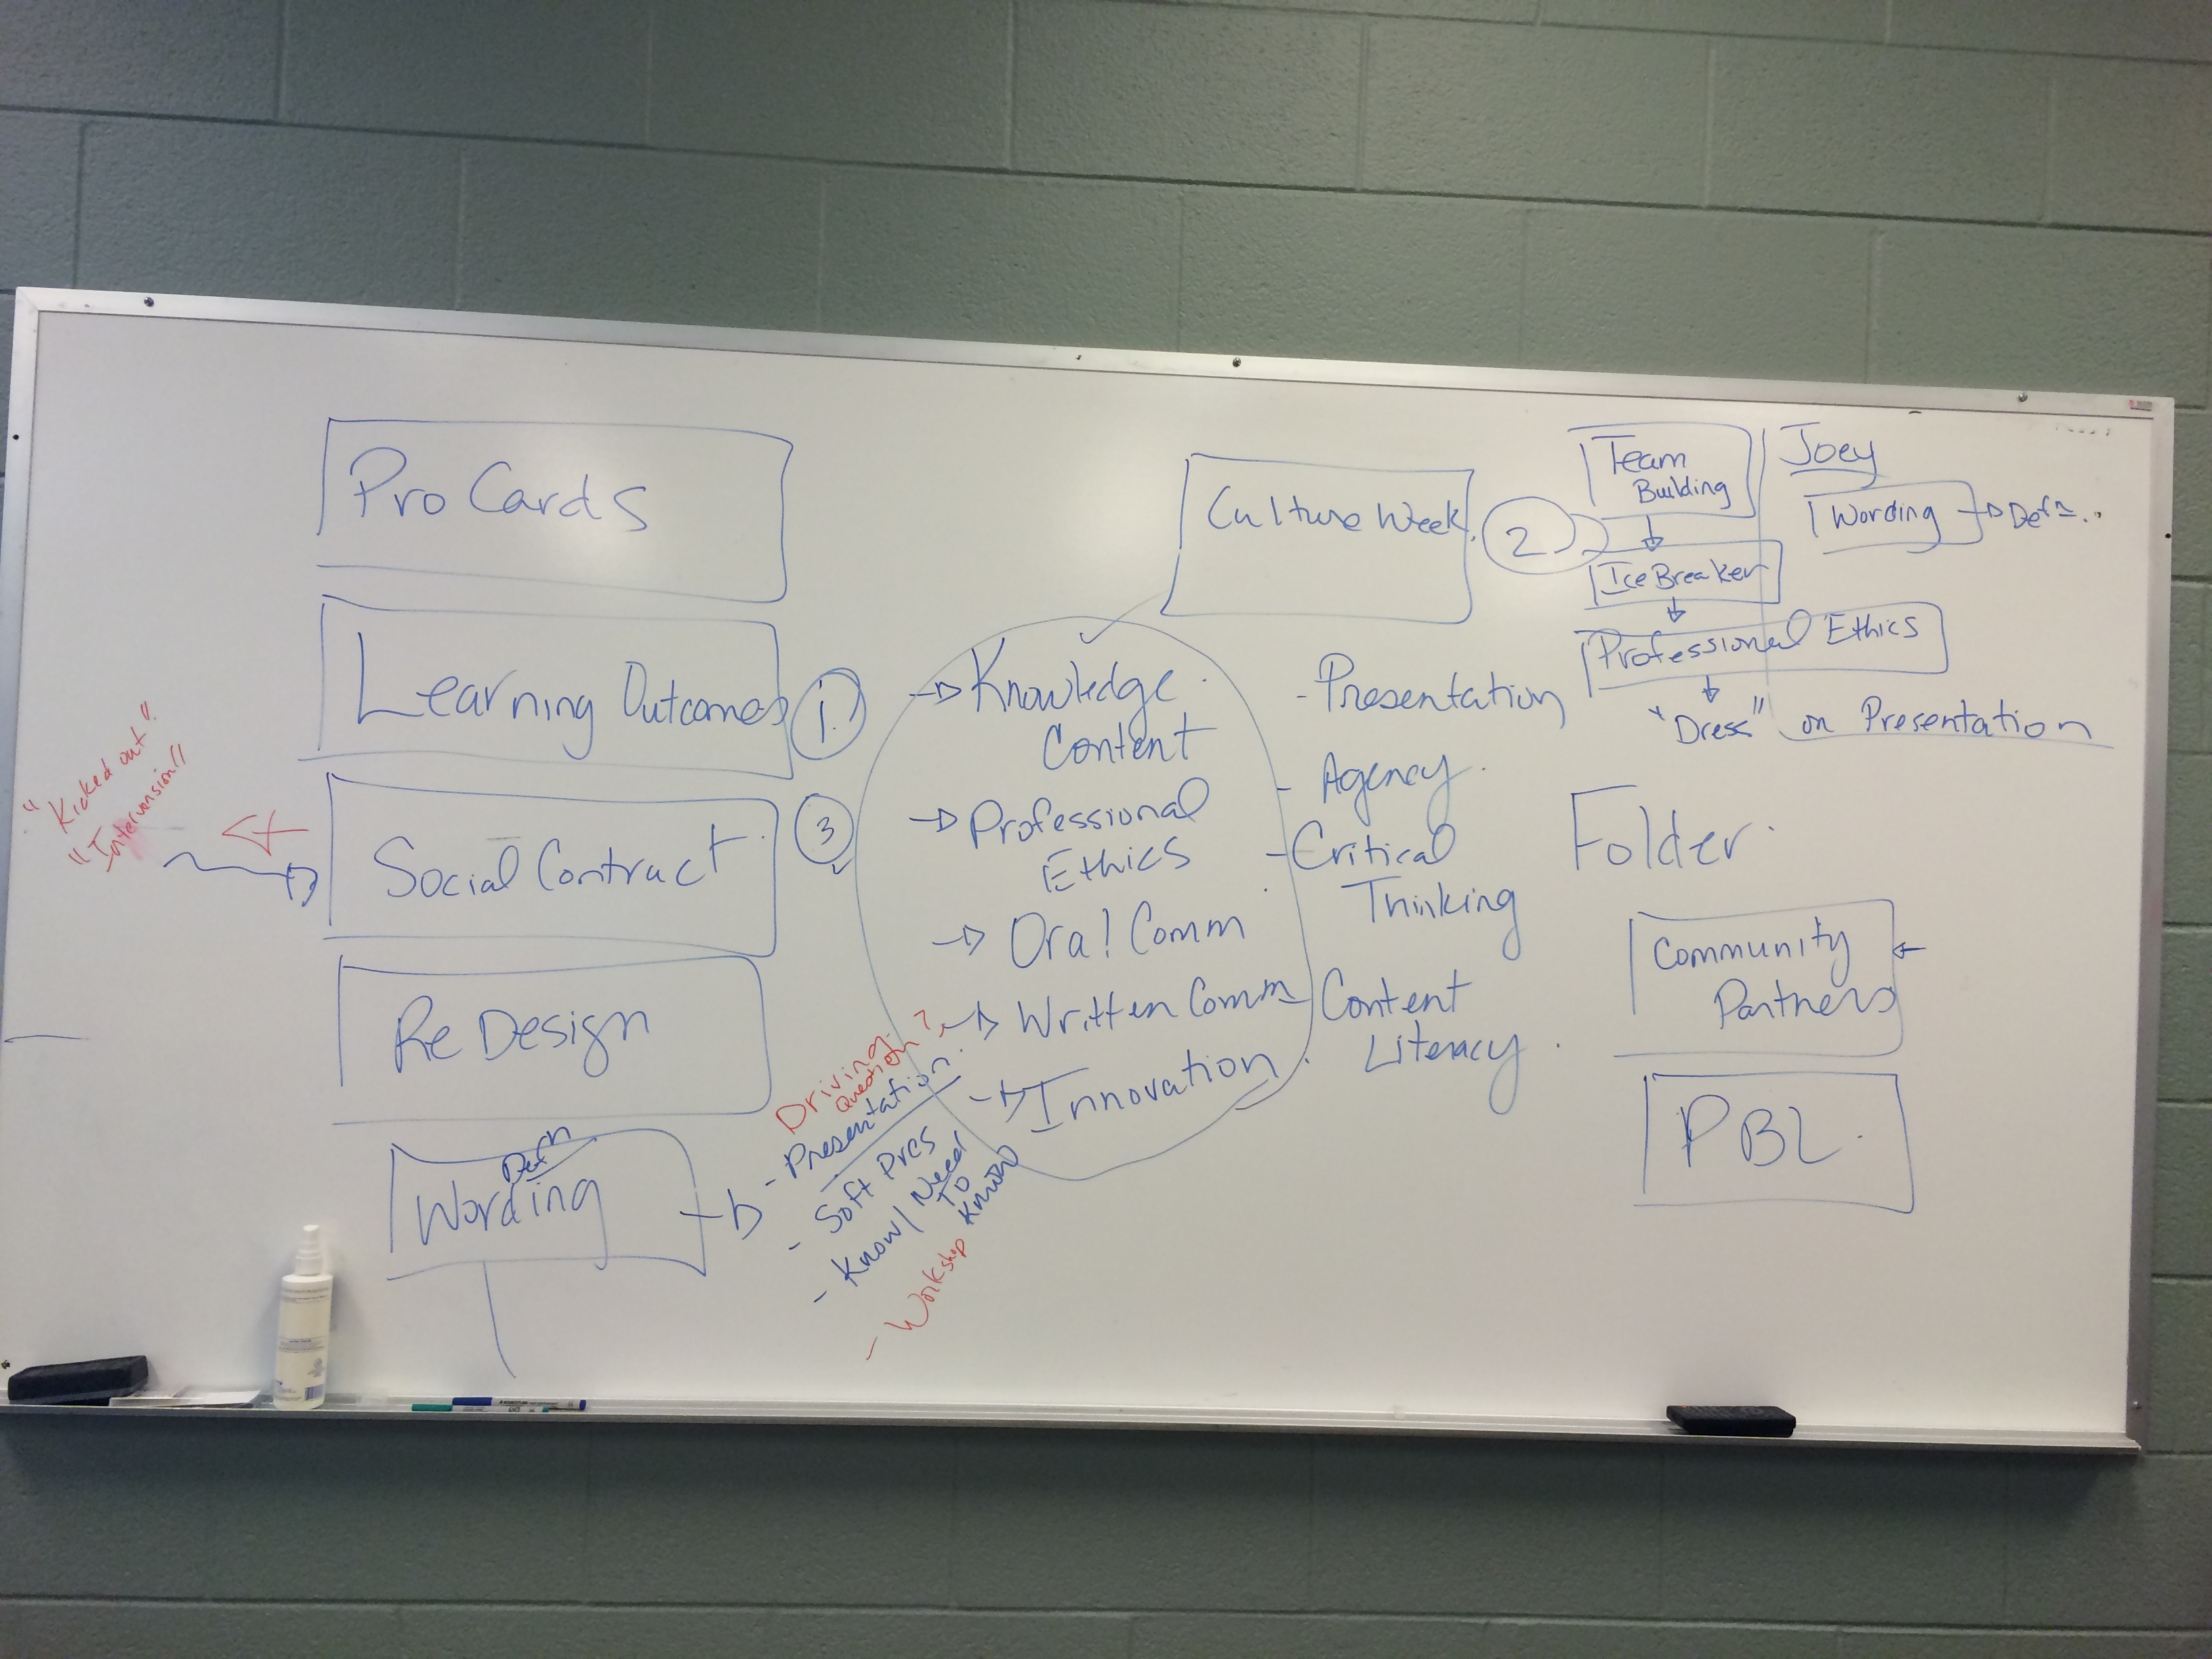 Pro Cards
Learning Outcomes
1.
"Kicked out".
"Intervension"
Social Contract
3
ReDesign
Defn
Wording
Driving
Question?
- Presentation.
- Soft Pres
- Know / Need
To
Know
- Workshop
Culture Week
2
Knowledge
Content
Professional
Ethics
Oral Comm
Written Comm
Innovation
- Presentation
- Agency.
- Critical
Thinking
Content
Literacy.
Team
Building
Ice Breaker
Professional Ethics
"Dress" on Presentation
Joey
Wording
Defn..
Folder.
Community
Partners
PBL.